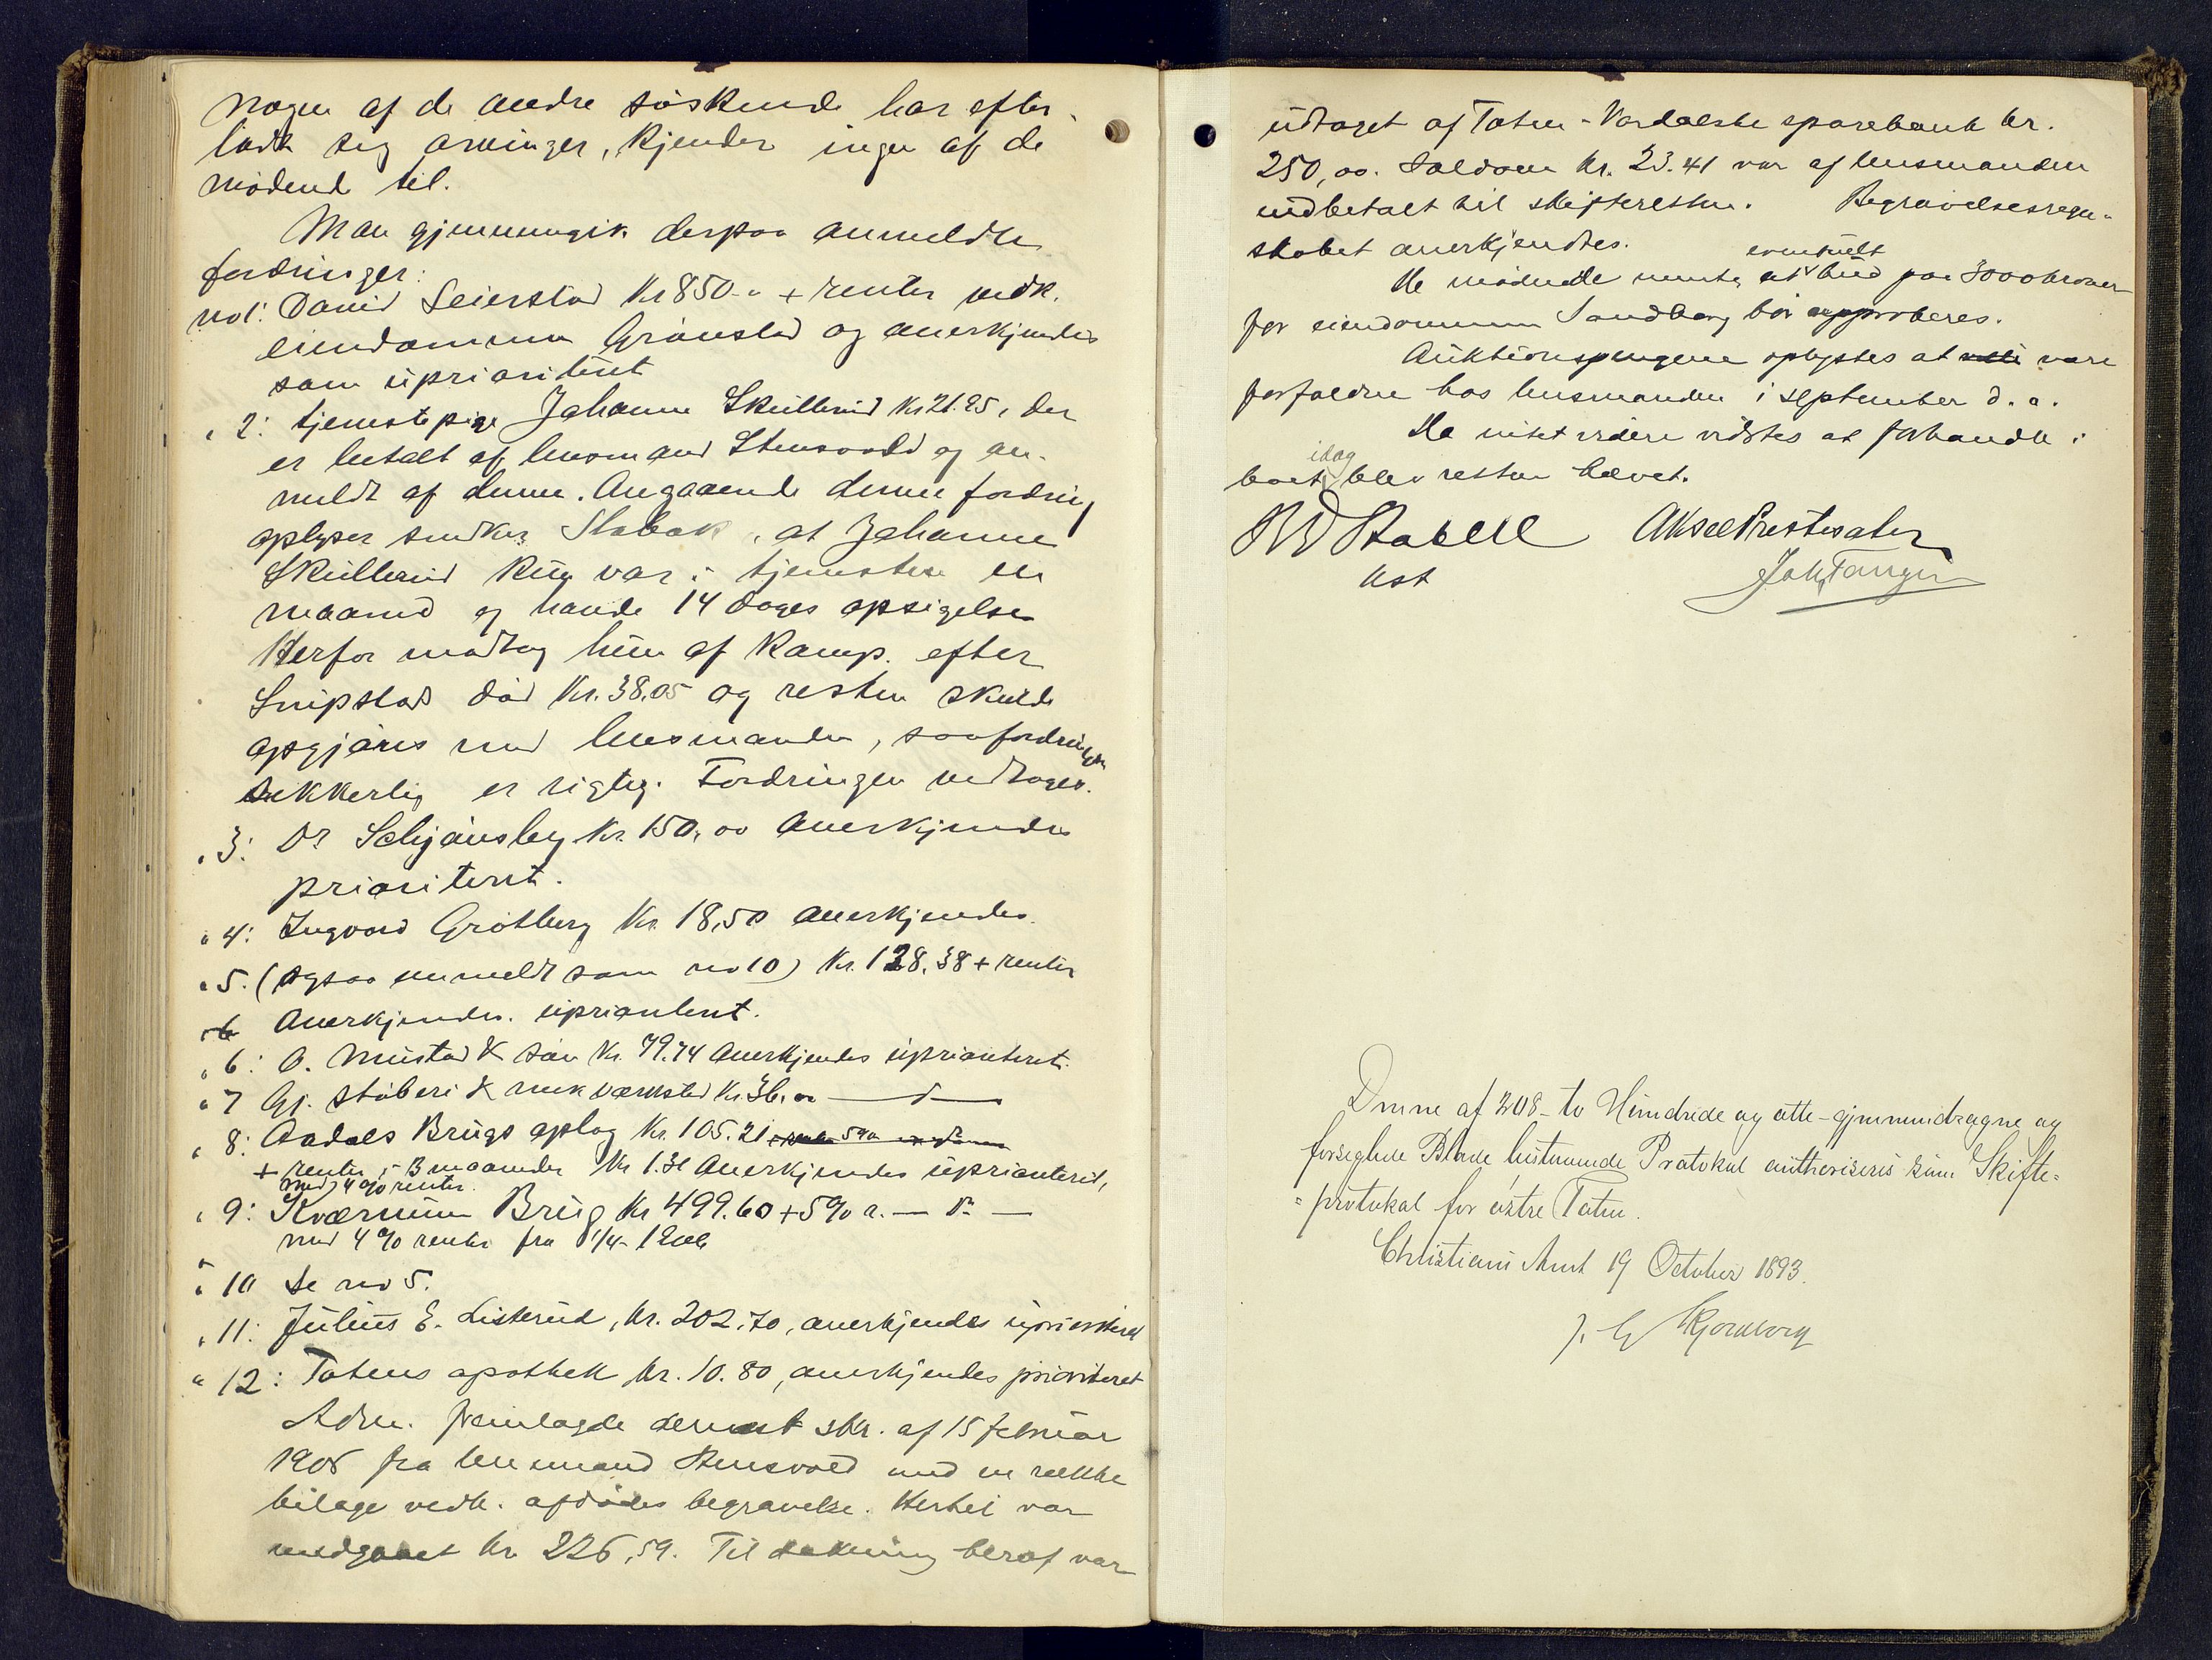 nogen af de andre søskende har efter
ladt sig arvinger, kjender ingen af de
mødende til.
Man gjennemgik derpaa anmeldte
fordringer:
no 1: David Seierstad Kr 850.- + renter vedk.
eiendommen Grønstad og anerkjendes
som uprioritert
" 2: tjenestepige Johanne Skullerud Kr 21.95, der
er betalt af lensmand Stensvold og an-
meldt af denne. Angaaende denne fordring
oplyser Stabak, at Johanne
Skullerud kun var i tjeneste en
maaned og havde 14 dages opsigelse
Herfor modtog hun af Kamp. efter
Snipstad død Kr. 38.05 og resten skulde
opgjøres med lensmanden, saa fordringen
sikkerlig er rigtig. Fordringen vedtages.
" 3: Dr Schjønsby Kr. 150,00 Anerkjendes
prioritert.
" 4: Ingvard Grøtberg Kr. 18,50 anerkjendes.
" 5. (ogsaa anmeldt som no 10) Kr. 128.38 + renter
" 6 Anerkjendes. uprioritert.
" 6: O. Mustad & søn Kr. 79.74 Anerkjendes uprioritert.
" 7 Gj. støberi & mek værksted Kr. 36.00 — d —
" 8: Aadals Brugs oplag Kr. 105.21
+ renter i 3 maaneder Kr 1.31 Anerkjendes uprioritert,
med 4 % renter.
" 9: Kværnum Brug Kr 499.60 + 5% a. — do —
med 4 % renter fra 1/4- 1906
" 10 Se no 5.
" 11: Julius E. Listerud, kr. 202,70, anerkjendes uprioriteret
" 12: Totens apothek, kr. 10.80, anerkjendes prioriteret
Adm. fremlagde dernæst skr. af 15 februar
1906 fra lensmand Stensvold med en række
bilage vedk. afdødes begravelse. Hertil var
medgaaet kr. 226,59. Til dækning heraf var
udtaget af Toten - Vardalske sparebank kr.
250,00. Saldoen kr. 23.41 var af lensmanden
indbetalt til skifteretten. Begravelsesregn-
skabet anerkjendtes.
eventuelt
De mødende mente, at bud paa 3000 kroner
for eiendommen Sandberg bør approberes.
Auktionspengene oplystes at være
forfaldne hos lensmanden i september d. a.
Da intet videre vidstes at forhandle i
idag
boet, blev retten hævet.
Stabell Aksel Prestesæter
kst Joh Tangen
Denne af 208 - to Hundrede og otte - gjennemdragne og
forseglede Blade bestaaende Protokol authoriseres som Skifte-
= protokol for østre Toten.
Christians Amt 19 October 1893.